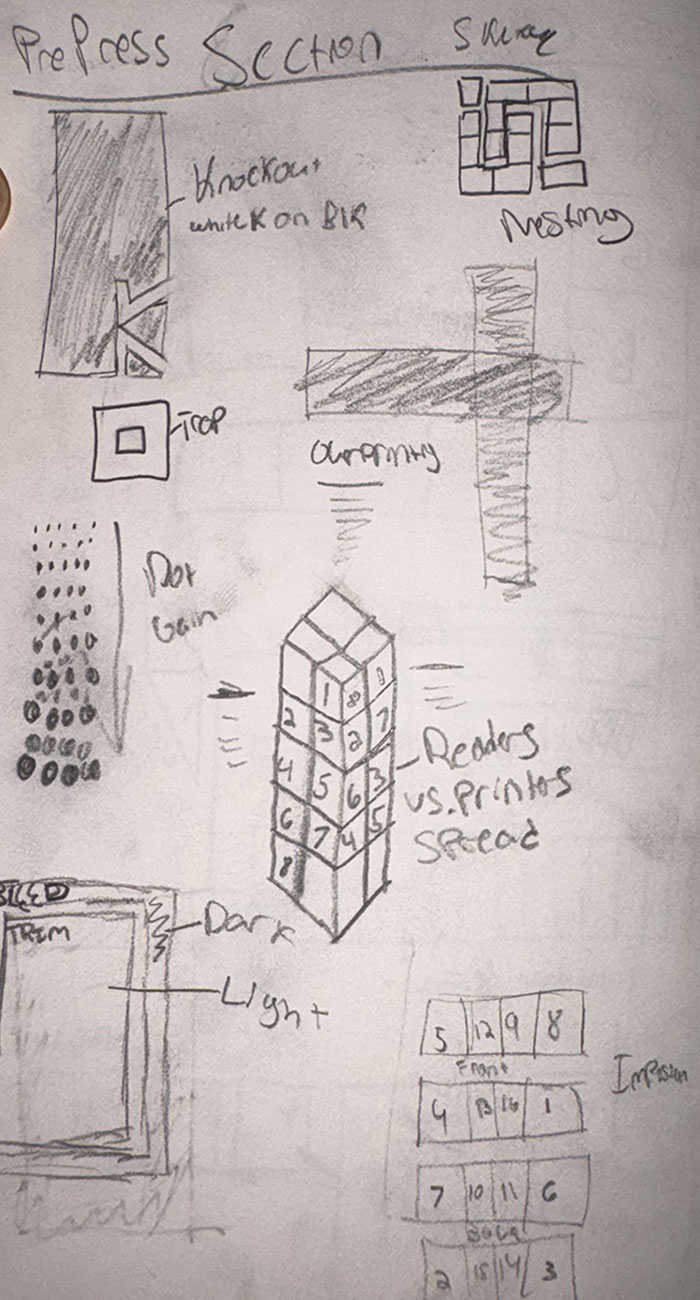 PrePress Section
Knockout
white K on Blk
K
Nesting
Trap
Overprinting
Dot
Gain
1 8 1
2 3 2 7
4 5 6 3
6 7 4 5
8
Readers
vs. printers
spread
BLEED
TRIM
Dark
Light
5 12 9 8
Front
4 13 16 1
7 10 11 6
Back
2 15 14 3